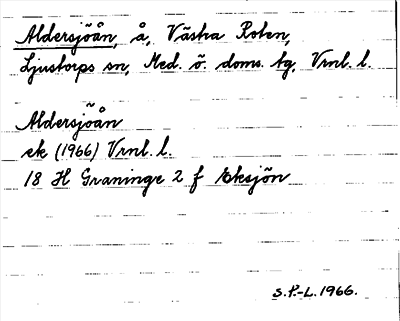 Aldersjöån, å, Västra Roten,
Ljustorps sn, Med. ö. doms. tg, Vrnl. l.
Aldersjöån
ek (1966) Vrnl. l.
18 H Graninge 2 f Eksjön
S.P.-L. 1966.